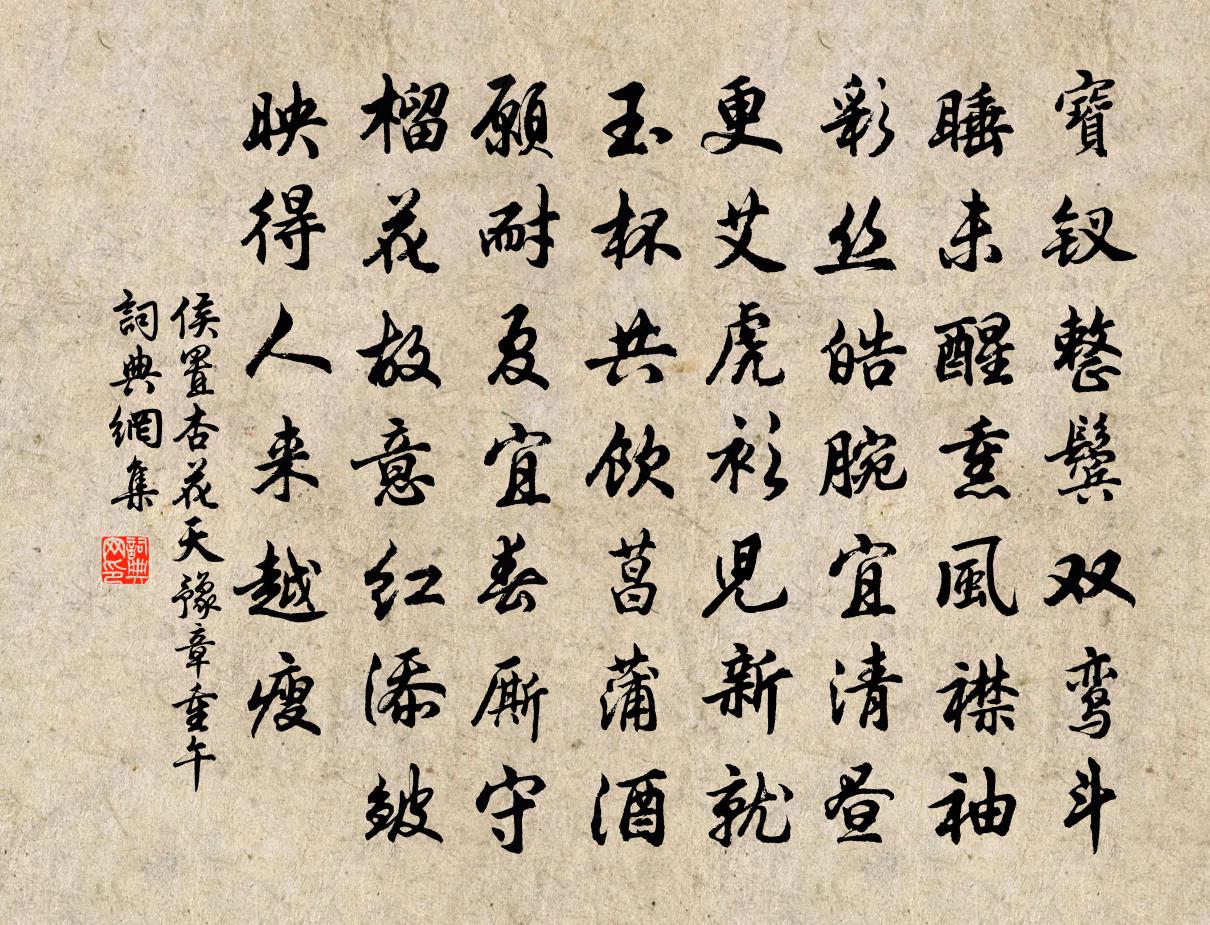 寶钗整鬓双鸾斗
睡未醒熏風襟袖
彩丝皓腕宜清昼
更艾虎衫児新就
玉杯共饮菖蒲酒
願耐夏宜春厮守
榴花故意红添皱
映得人来越瘦
侯置杏花天豫章重午
詞典網集
詞典網印